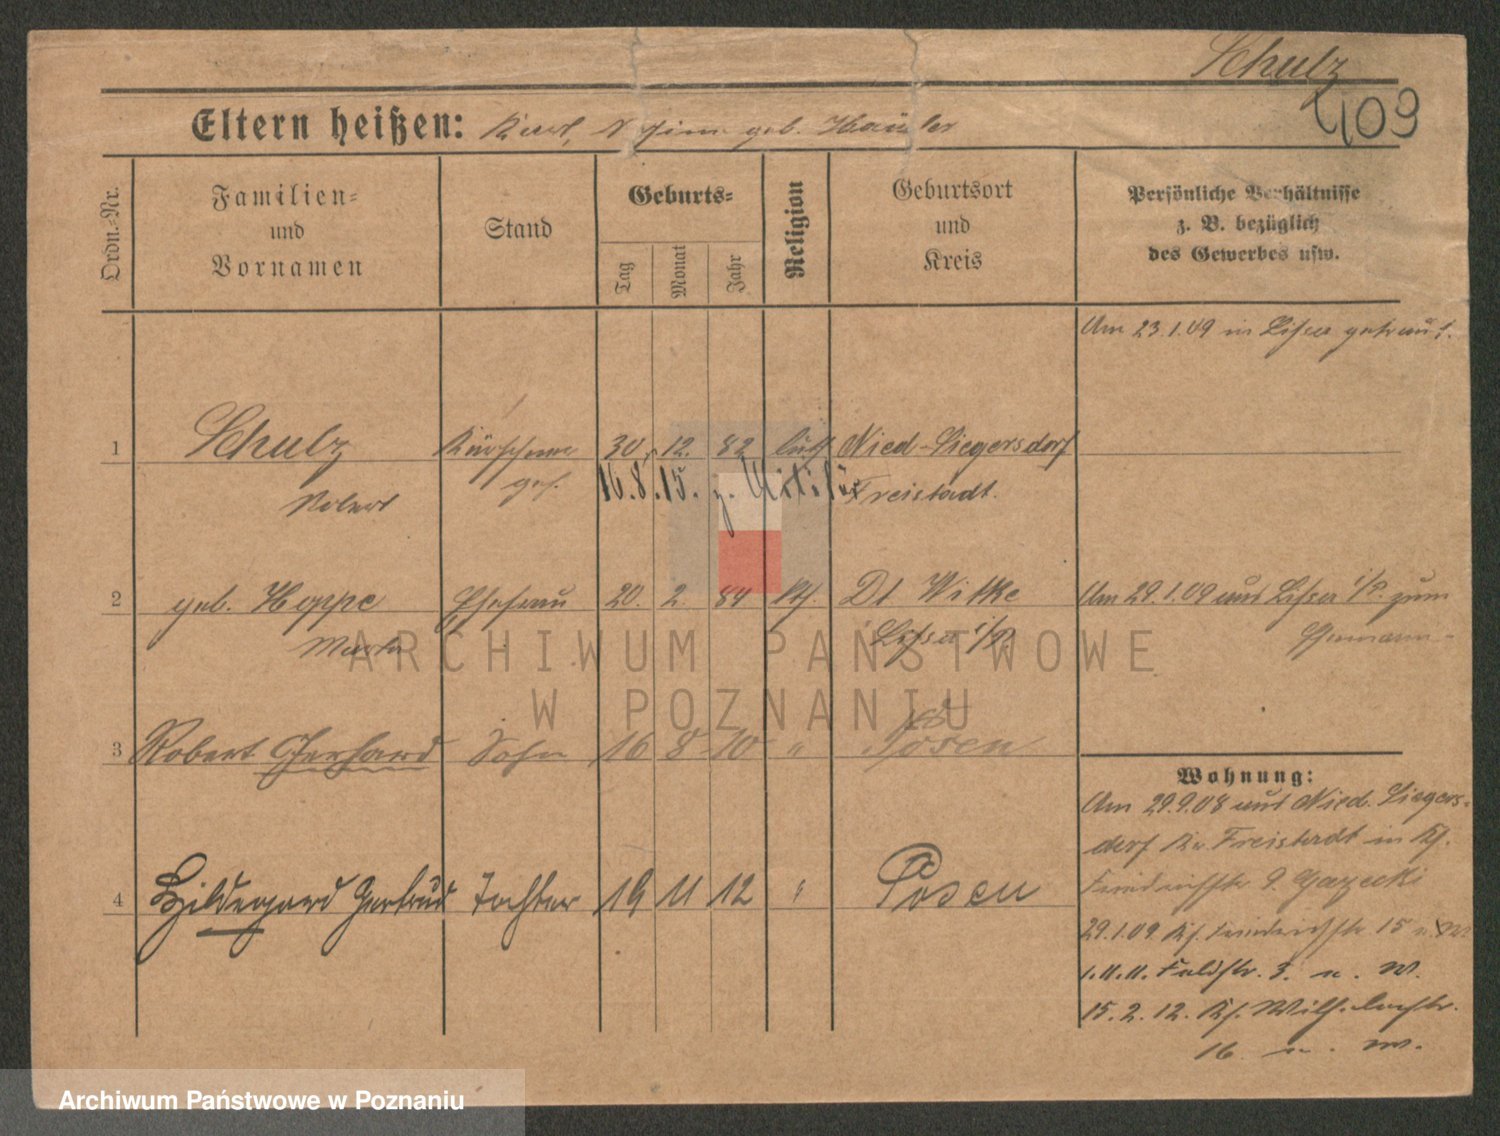 Schulz
Eltern heißen: Karl, geb.
409
Ordn.-Nr.
Familien-
und
Vornamen
Stand
Geburts-
Tag
Monat
Jahr
Religion
Geburtsort
und
Kreis
Persönliche Verhältnisse
z. B. bezüglich
des Gewerbes usw.
Am 23.1.09 in Lissa getraut.
1 Schulz Kürschner 30. 12. 82 luth Nied-Siegersdorf
Robert ges. 16.8.15. z. Militär Freistadt.
2 geb. Hoppe Ehefrau 20. 2. 84 kth. Dt Wilke Am 29.1.09 aus Lissa i/P. zum
Martha Lissa i/P. Ehemann
3 Robert Gerhard Sohn 16 8 10 " Posen
Wohnung:
Am 29.9.08 aus Nied. Siegers-
dorf Kr. Freistadt in
4 Hildegard Gertrud Tochter 19 11 12 " Posen
29.1.09. 15 u. W.
1.11.11. Feldstr. 3. u. W.
15.2.12. Wilh.
16 u. W.
ARCHIWUM PAŃSTWOWE
W POZNANIU
Archiwum Państwowe w Poznaniu